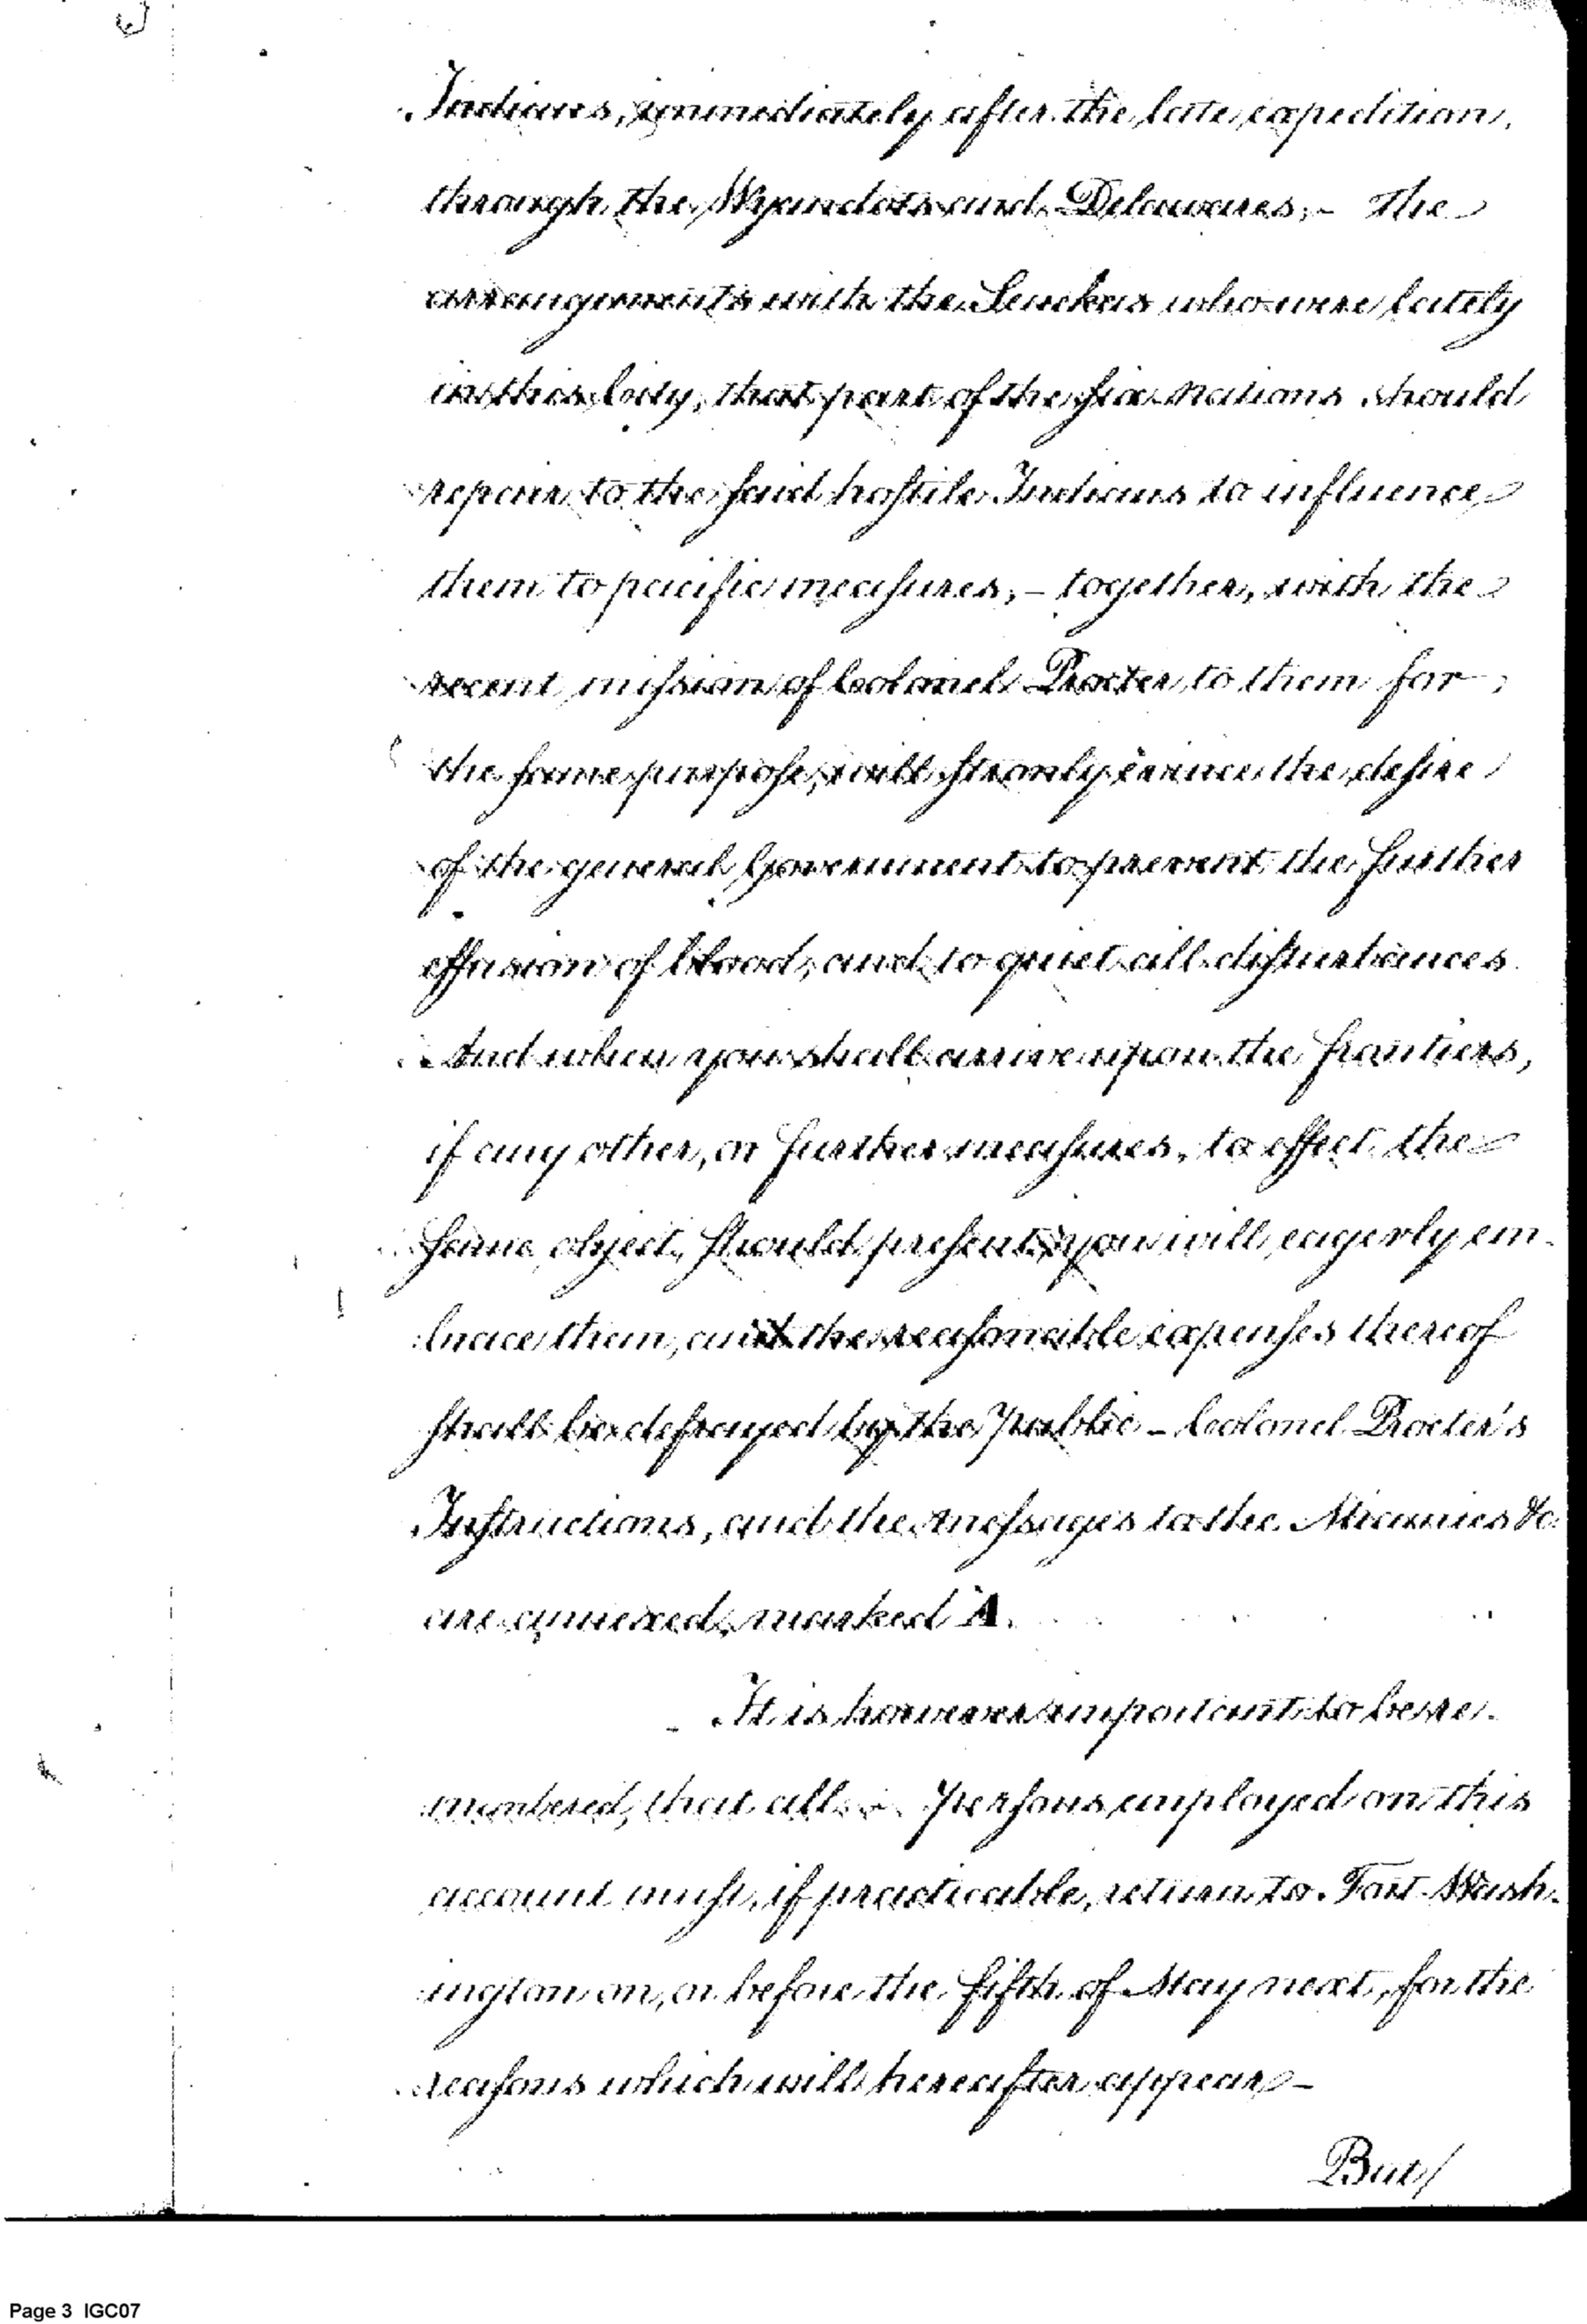 Indians, immediately after the late expedition,
through the Wyandots and Delawares,- the
arrangements with the Senekas who were lately
in this City, that part of the six nations should
repair to the said hostile Indians to influence
them to pacific measures,- together, with the
recent mission of Colonel Procter to them for
the same purpose, will stronly evince the desire
of the general Government to prevent the further
effusion of blood, and to quiet all disturbances.
And when you shall arrive upon the frontiers,
if any other, or further measures, to effect the
same object, should present, you will eagerly em-
brace them, and the reasonable expenses thereof
shall be defrayed by the Public - Colonel Procter's
Instructions, and the messages to the Miamies &c
are annexed, marked A.
It is however important to be re-
membered, that all persons employed on this
account must, if practicable, return to Fort Wash-
ington on, or before the fifth of May next, for the
reasons which will hereafter appear-
But/
Page 3 IGC07